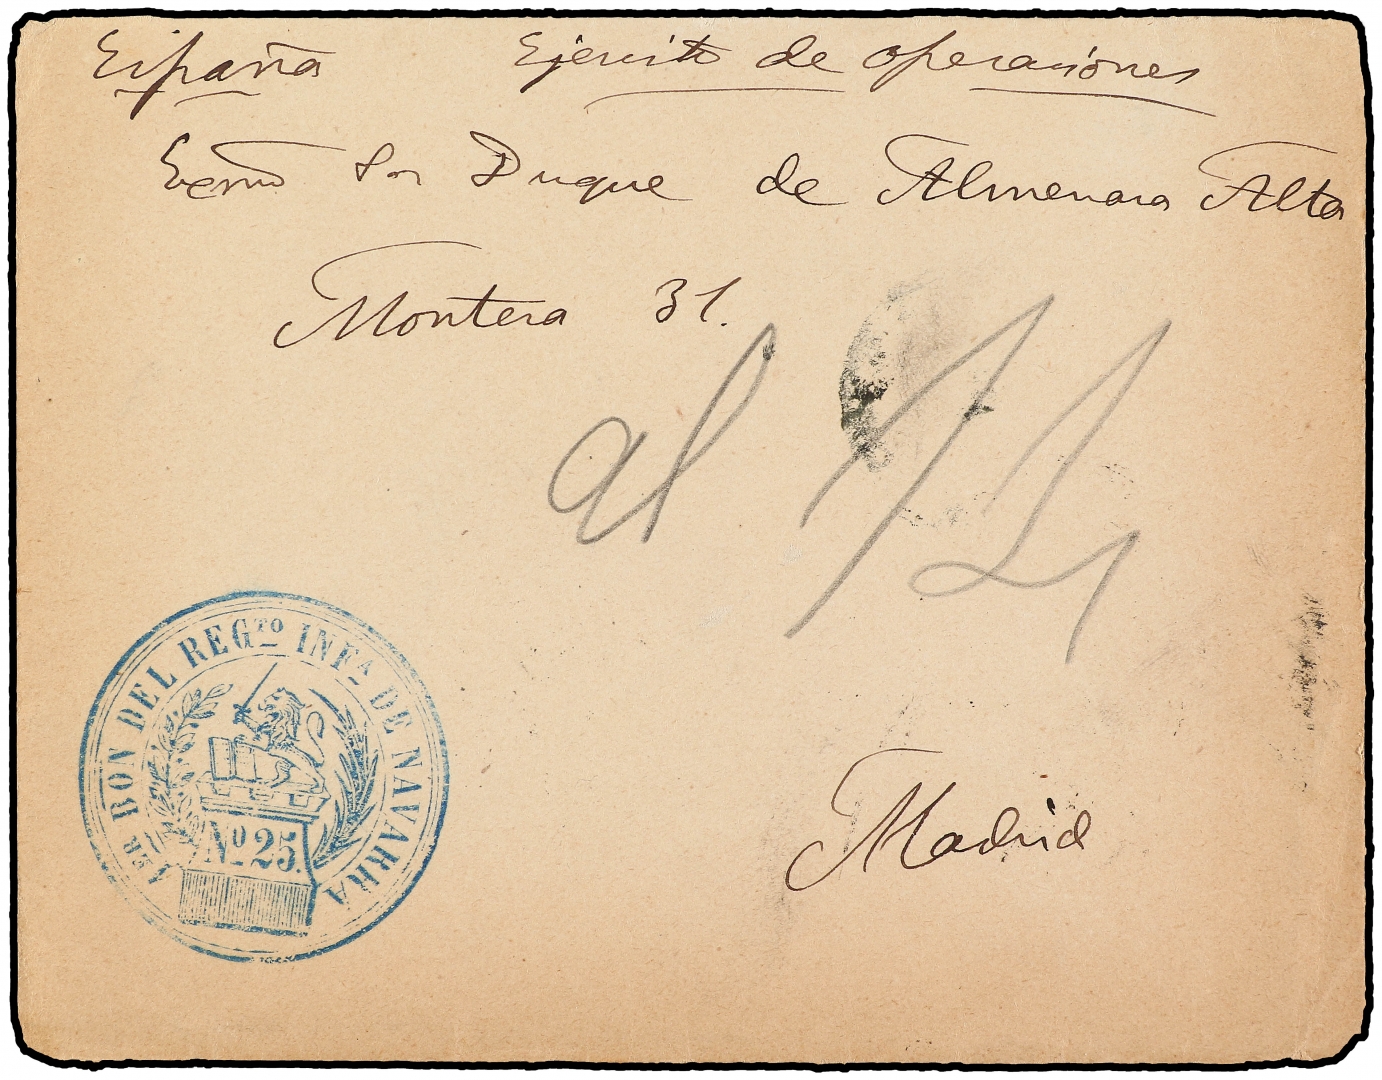 España Ejército de operaciones
Excmo Sor Duque de Almenara Alta
Montera 31.
al
Madrid
1ER BON DEL REGTO INFA DE NAVARRA
No 25.